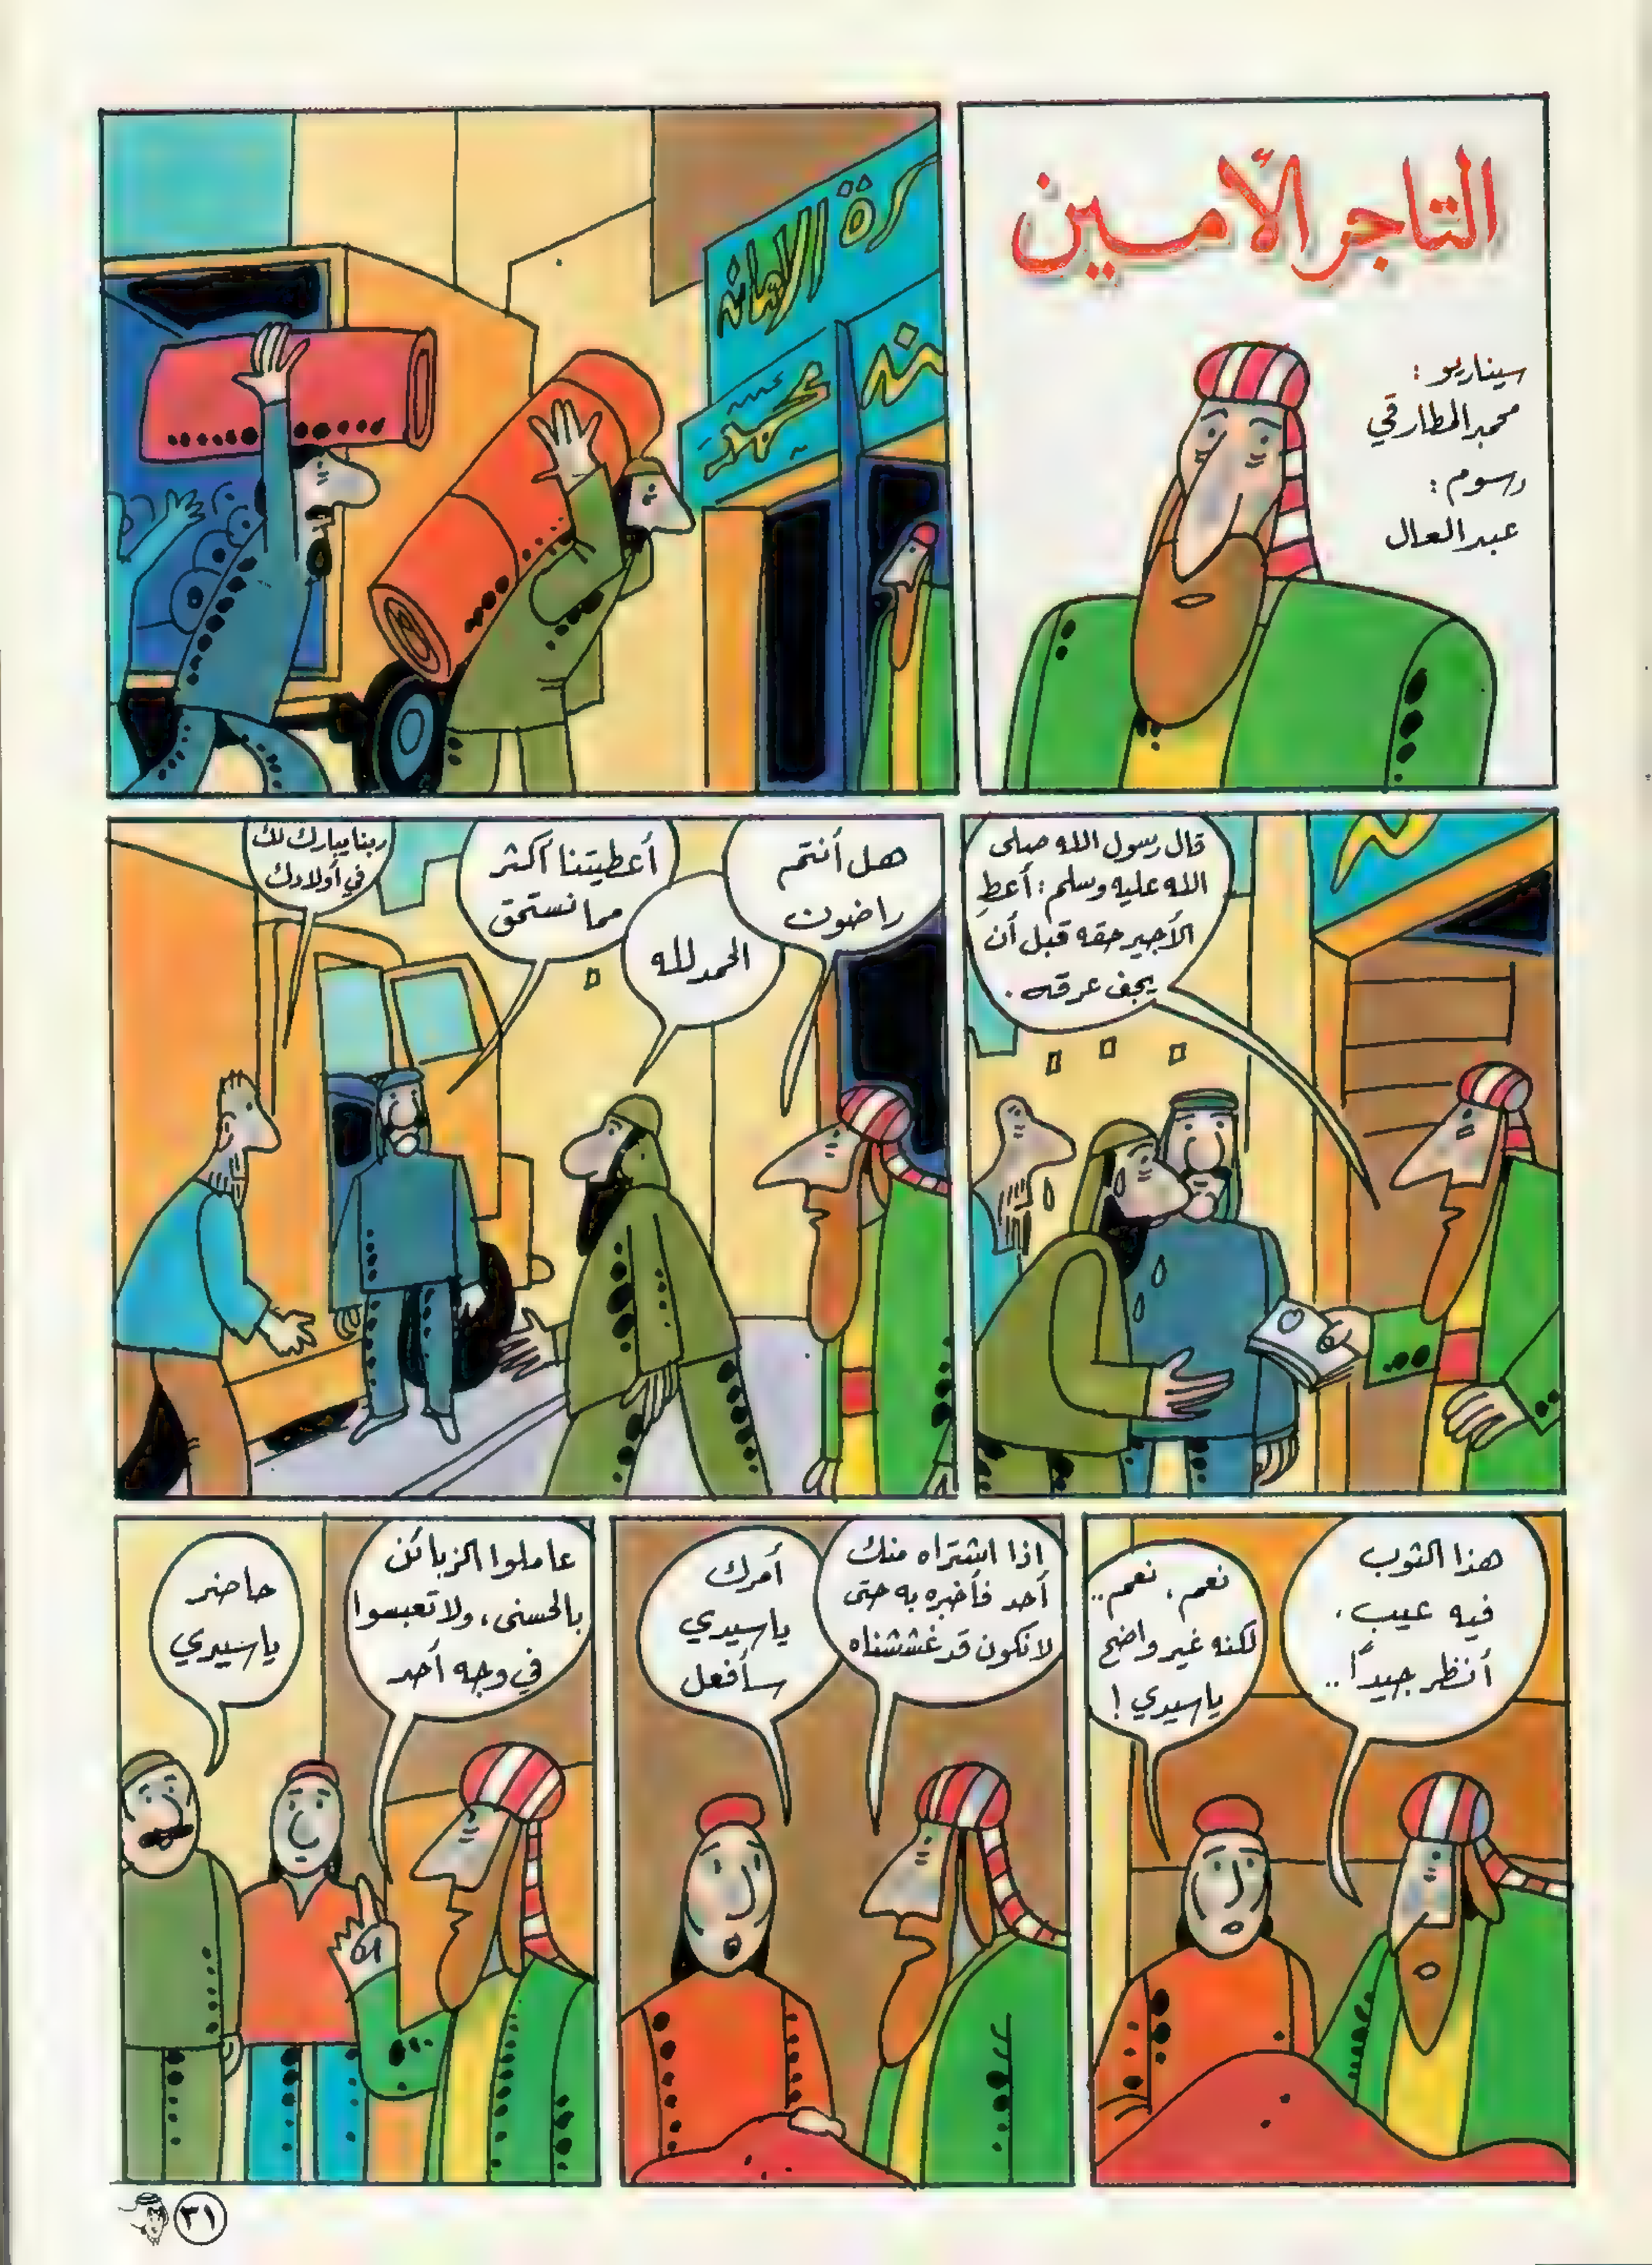 التاجر الأمين
سيناريو :
محمد المطارقي
رسوم :
عبد العال
رة الامانه
نه
محمد
قال رسول الله صلى
الله عليه وسلم : أعطِ
الأجير حقه قبل أن
يجف عرقه .
هل أنتم
راضون
الحمد لله
أعطيتنا أكثر
مما نستحق
ربنا يبارك لك
في أولادك
هذا الثوب
فيه عيب ،
أنظر جيداً ..
نعم ، نعم ..
لكنه غير واضح
يا سيدي !
اذا اشتراه منك
أحد فأخبره به حتى
لا نكون قد غششناه
أمرك
يا سيدي
سأفعل
عاملوا الزبائن
بالحسنى ، ولا تعبسوا
في وجه أحد
حاضر
يا سيدي
٣١